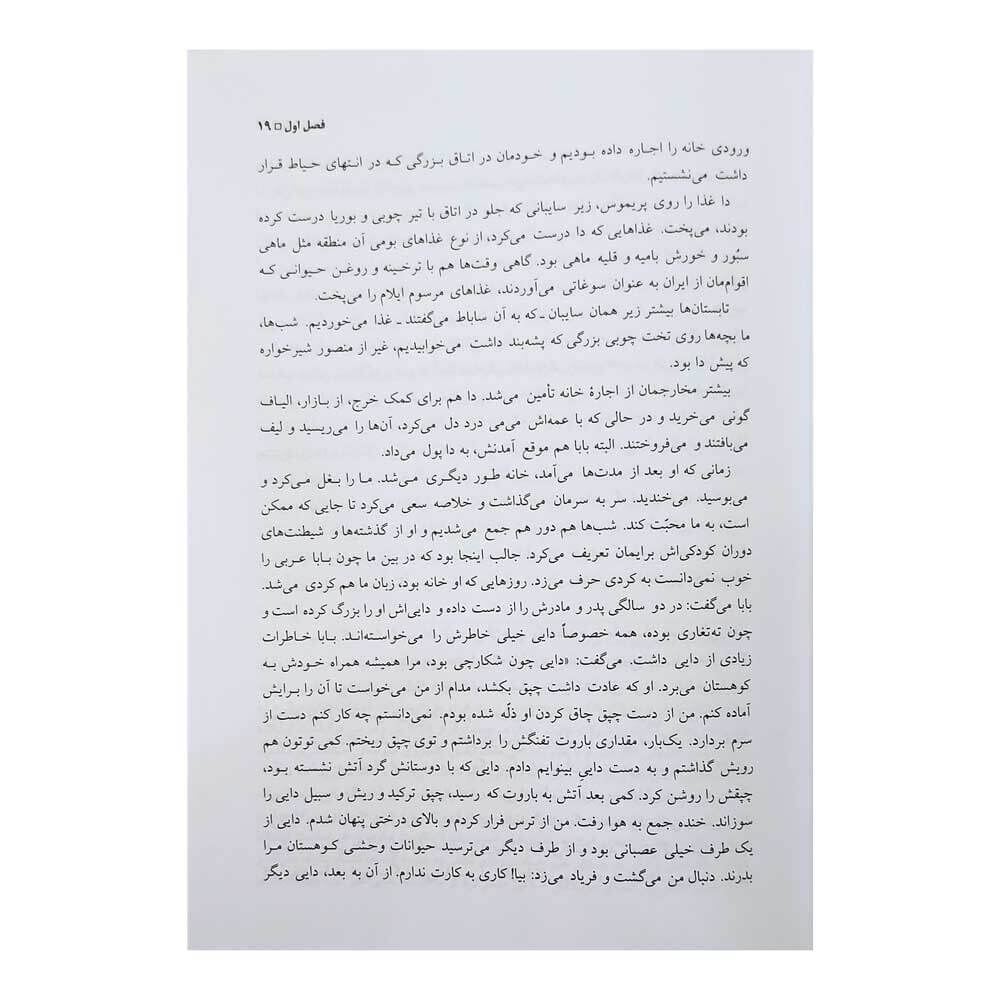 فصل اول □ ۱۹
ورودی خانه را اجاره داده بودیم و خودمان در اتاق بزرگی که در انتهای حیاط قرار
داشت می‌نشستیم.
دا غذا را روی پریموس، زیر سایبانی که جلو در اتاق با تیر چوبی و بوریا درست کرده
بودند، می‌پخت. غذاهایی که دا درست می‌کرد، از نوع غذاهای بومی آن منطقه مثل ماهی
سبُور و خورش بامیه و قلیه ماهی بود. گاهی وقت‌ها هم با ترخینه و روغن حیوانی که
اقوام‌مان از ایران به عنوان سوغاتی می‌آوردند، غذاهای مرسوم ایلام را می‌پخت.
تابستان‌ها بیشتر زیر همان سایبان ـ که به آن ساباط می‌گفتند ـ غذا می‌خوردیم. شب‌ها،
ما بچه‌ها روی تخت چوبی بزرگی که پشه‌بند داشت می‌خوابیدیم، غیر از منصور شیرخواره
که پیش دا بود.
بیشتر مخارجمان از اجارهٔ خانه تأمین می‌شد. دا هم برای کمک خرج، از بازار، الیاف
گونی می‌خرید و در حالی که با عمه‌اش می‌می درد دل می‌کرد، آن‌ها را می‌ریسید و لیف
می‌بافتند و می‌فروختند. البته بابا هم موقع آمدنش، به دا پول می‌داد.
زمانی که او بعد از مدت‌ها می‌آمد، خانه طور دیگری می‌شد. ما را بغل می‌کرد و
می‌بوسید. می‌خندید. سر به سرمان می‌گذاشت و خلاصه سعی می‌کرد تا جایی که ممکن
است، به ما محبّت کند. شب‌ها هم دور هم جمع می‌شدیم و او از گذشته‌ها و شیطنت‌های
دوران کودکی‌اش برایمان تعریف می‌کرد. جالب اینجا بود که در بین ما چون بابا عربی را
خوب نمی‌دانست به کردی حرف می‌زد. روزهایی که او خانه بود، زبان ما هم کردی می‌شد.
بابا می‌گفت: در دو سالگی پدر و مادرش را از دست داده و دایی‌اش او را بزرگ کرده است و
چون ته‌تغاری بوده، همه خصوصاً دایی خیلی خاطرش را می‌خواسته‌اند. بابا خاطرات
زیادی از دایی داشت. می‌گفت: «دایی چون شکارچی بود، مرا همیشه همراه خودش به
کوهستان می‌برد. او که عادت داشت چپق بکشد، مدام از من می‌خواست تا آن را برایش
آماده کنم. من از دست چپق چاق کردن او ذلّه شده بودم. نمی‌دانستم چه کار کنم دست از
سرم بردارد. یک‌بار، مقداری باروت تفنگش را برداشتم و توی چپق ریختم. کمی توتون هم
رویش گذاشتم و به دست داییِ بینوایم دادم. دایی که با دوستانش گرد آتش نشسته بود،
چپقش را روشن کرد. کمی بعد آتش به باروت که رسید، چپق ترکید و ریش و سبیل دایی را
سوزاند. خنده جمع به هوا رفت. من از ترس فرار کردم و بالای درختی پنهان شدم. دایی از
یک طرف خیلی عصبانی بود و از طرف دیگر می‌ترسید حیوانات وحشی کوهستان مرا
بدرند. دنبال من می‌گشت و فریاد می‌زد: بیا! کاری به کارت ندارم. از آن به بعد، دایی دیگر